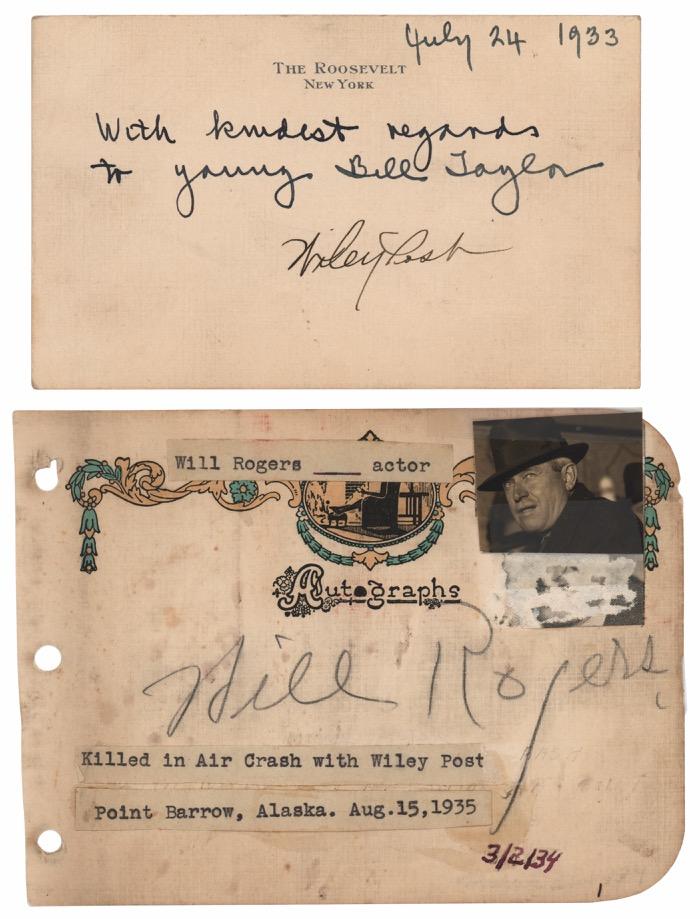 July 24 1933
THE ROOSEVELT
NEW YORK
With kindest regards
to young Bill Taylor
Wiley Post
Will Rogers ___ actor
Autographs
Will Rogers
Killed in Air Crash with Wiley Post
Point Barrow, Alaska. Aug.15,1935
3/2/34